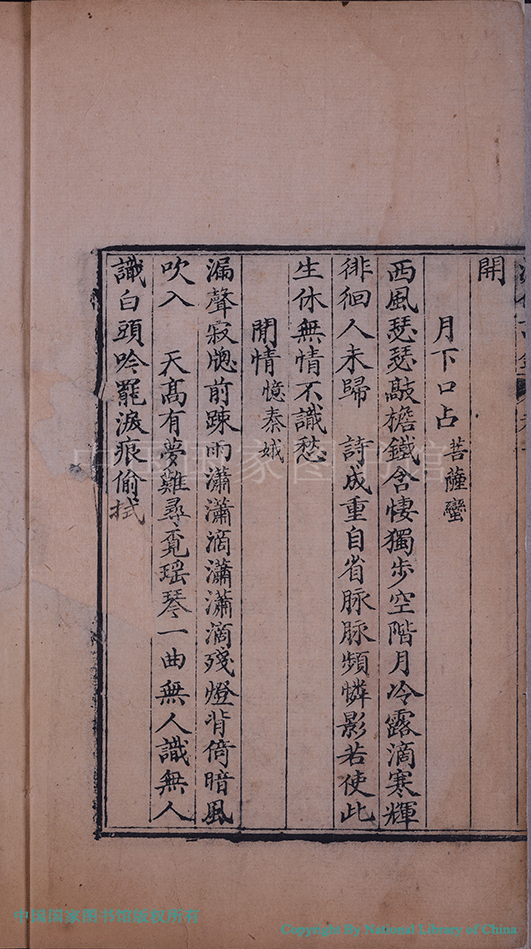 開
月下口占 菩薩蠻
西風瑟瑟敲檐鐵含悽獨步空階月冷露滴寒輝
徘徊人未歸 詩成重自省脉脉頻憐影若使此
生休無情不識愁
閒情 憶秦娥
漏聲寂牕前踈雨瀟瀟滴瀟瀟滴殘燈背倚暗風
吹入 天髙有夢難尋覔瑶琴一曲無人識無人
識白頭吟罷淚痕偷拭
中国国家图书馆
中国国家图书馆版权所有
Copyright By National Library of China